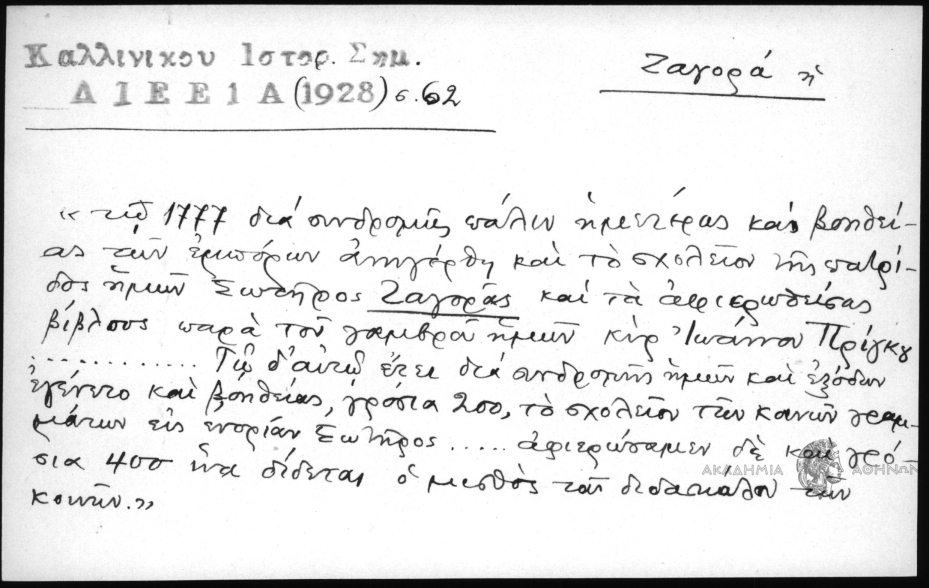 Καλλινικου Ιστορ. Σημ.
ΔΙΕΕ 1 Α (1928) σ. 62
Ζαγορά ἡ
« τῷ 1777 διά συνδρομῆς πάλιν ἡμετέρας καὶ βοηθεί-
ας τῶν ἐμπόρων ἀνηγέρθη καὶ τὸ σχολεῖον τῆς πατρί-
δος ἡμῶν Σωτῆρος Ζαγορᾶς καὶ τὰ ἀφιερωθείσας
βίβλους παρὰ τοῦ γαμβροῦ ἡμῶν κὺρ Ἰωάννου Πρίγκου
............ Τῷ δ' αὐτῷ ἔτει διά συνδρομῆς ἡμῶν καὶ ἐξόδων
ἐγένετο καὶ βοηθείας, γρόσια 200, τὸ σχολεῖον τῶν κοινῶν γραμ-
μάτων εἰς ἐνορίαν Σωτῆρος ..... ἀφιερώσαμεν δὲ καὶ γρό-
σια 400 ἵνα δίδεται ὁ μισθὸς τοῦ διδασκάλου τῶν
κοινῶν.»
ΑΚΑΔΗΜΙΑ ΑΘΗΝΩΝ